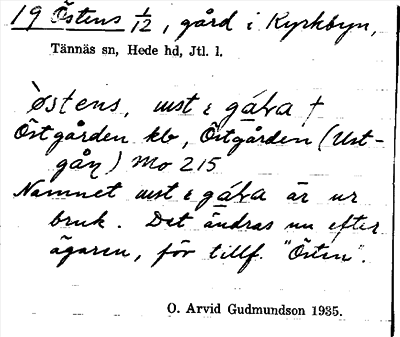 19 Östens 1/12, gård i Kyrkbyn,
Tännäs sn, Hede hd, Jtl. l.
östens, ust i gáła †
Östgården kb, Östgården (Ust-
gån) Mo 215
Namnet ust i gáła är ur
bruk. Det ändras nu efter
ägaren, för tillf. "Östen".
O. Arvid Gudmundson 1935.